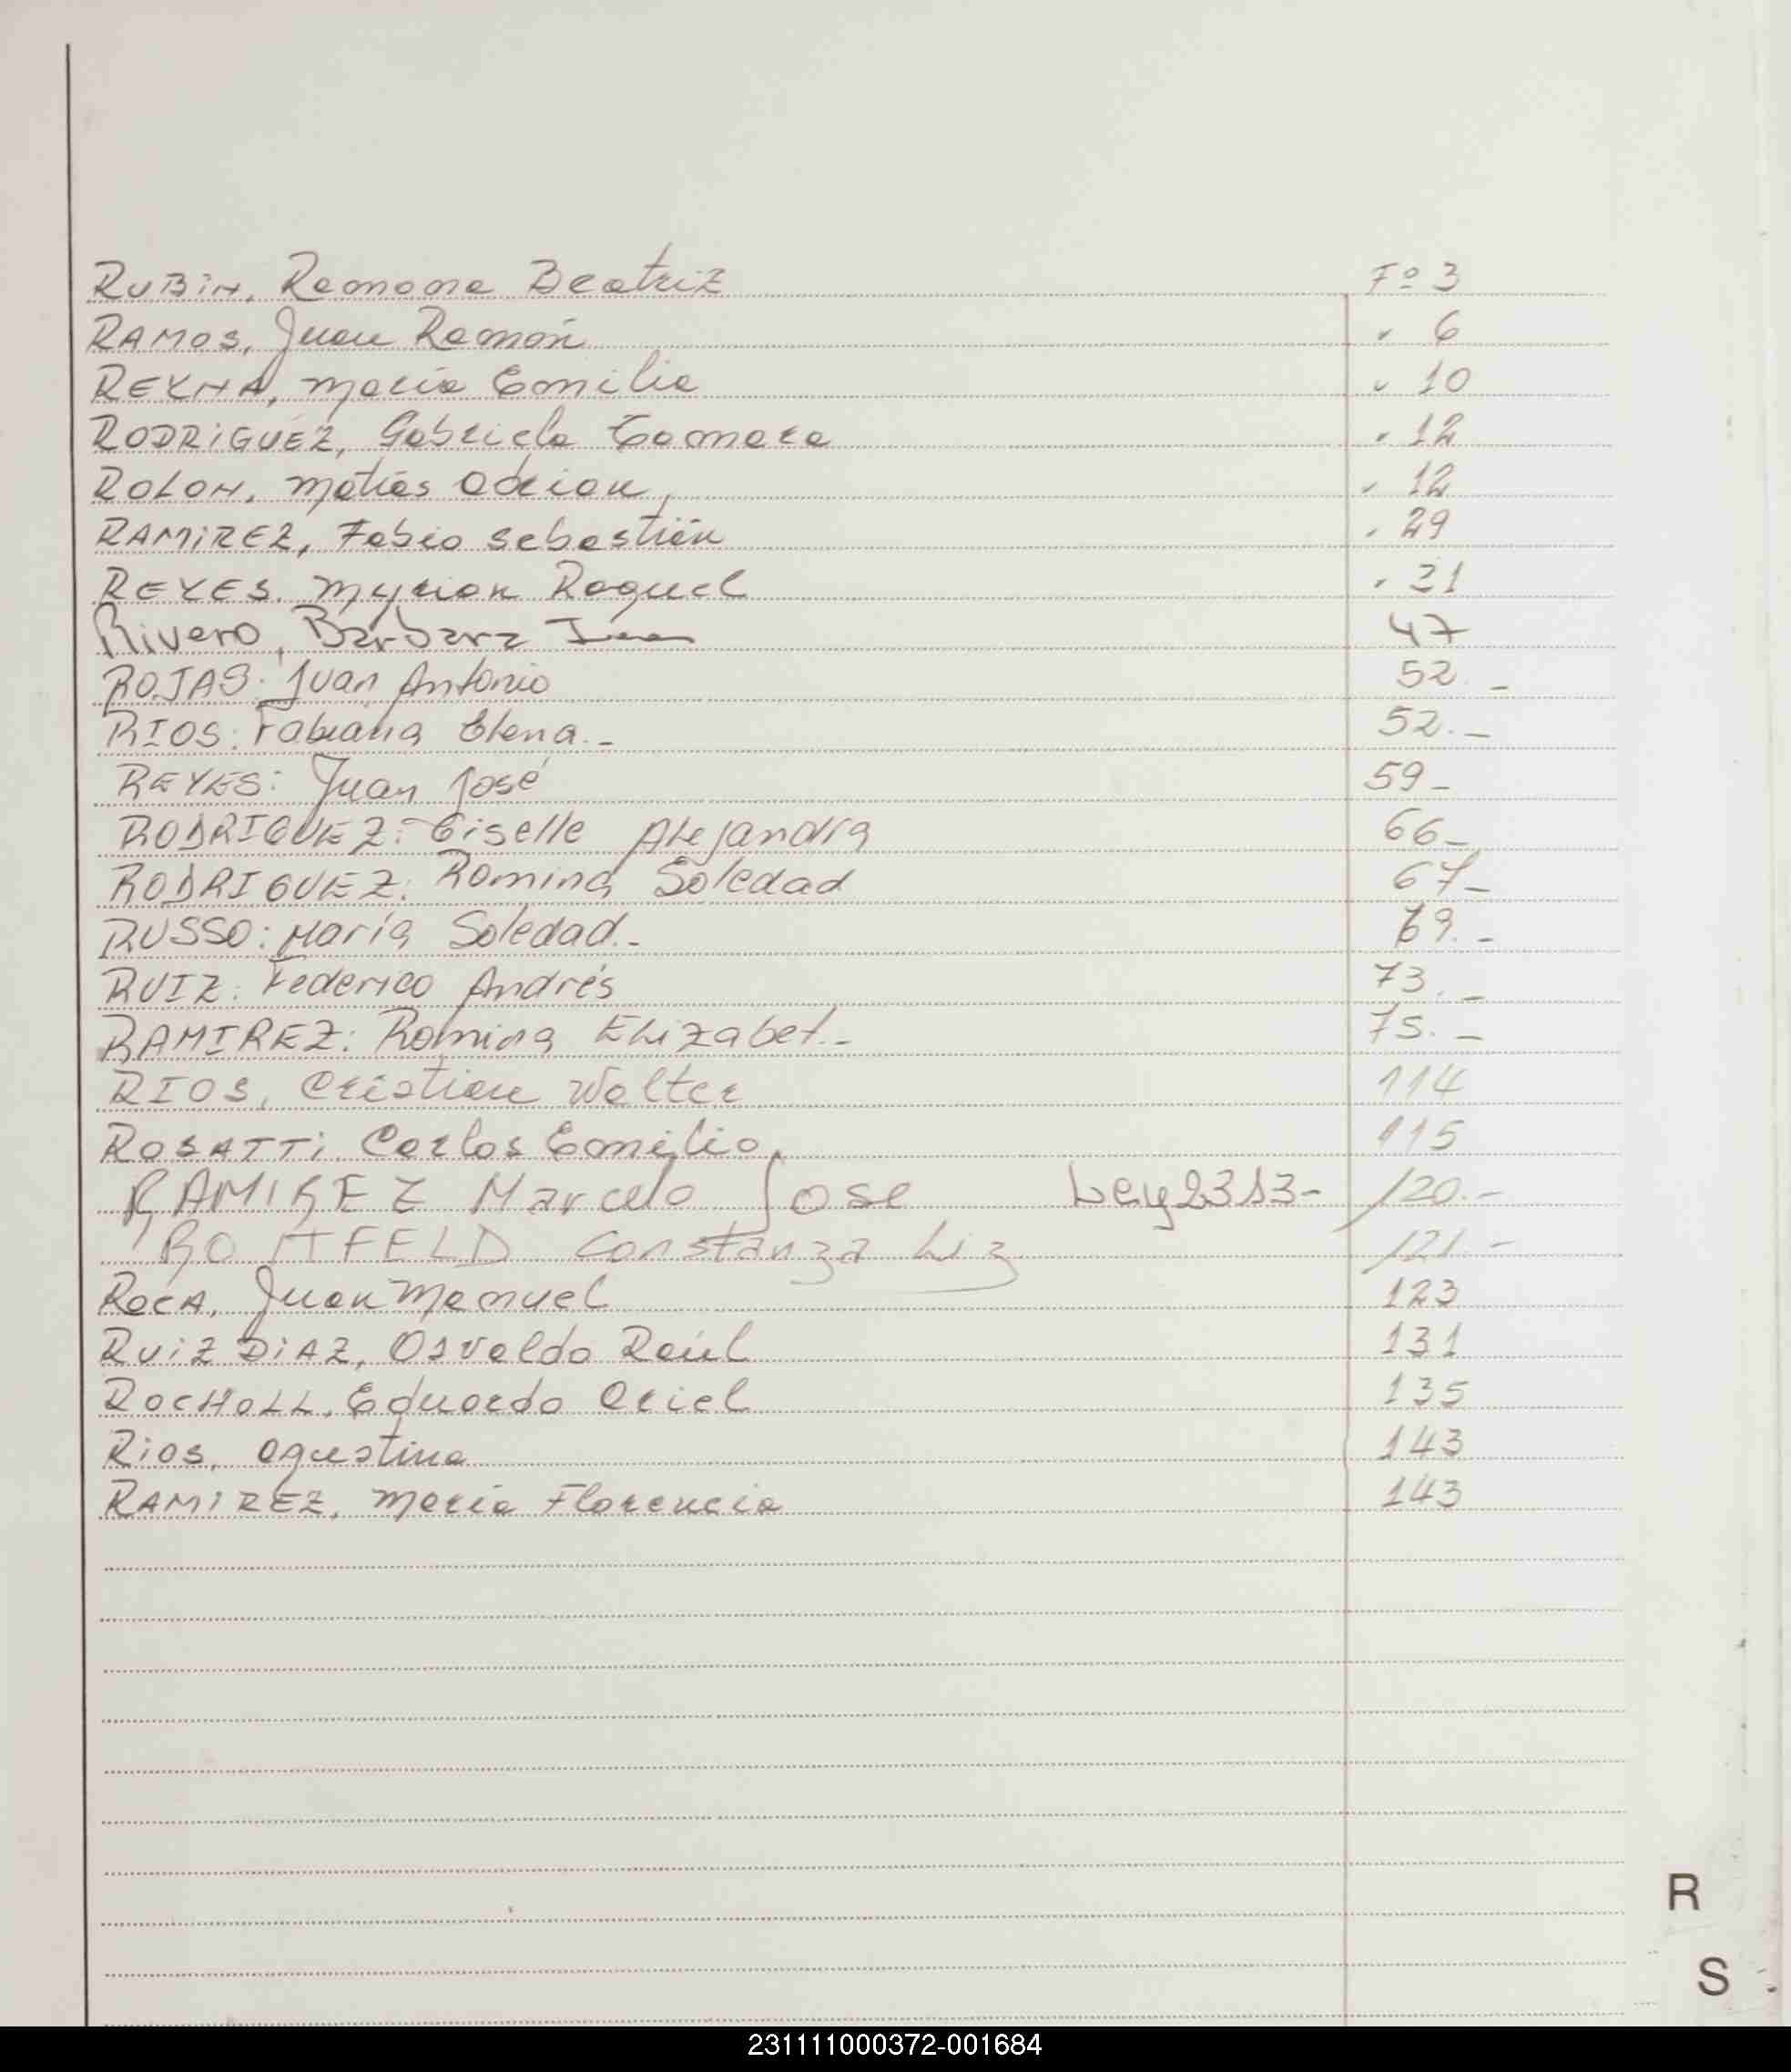 RUBIN, Ramona Beatriz Fº 3
RAMOS, Juan Ramón " 6
REYNA, María Emilia " 10
RODRIGUEZ, Gabriela Tamara " 12
ROLON, Matías Adrian " 12
RAMIREZ, Fabio Sebastián " 29
REYES, Myrian Raquel " 31
Rivero, Barbara 47
ROJAS: Juan Antonio 52.-
RIOS: Fabiana Elena.- 52.-
REYES: Juan José 59-
RODRIGUEZ: Giselle Alejandra 66-
RODRIGUEZ: Romina Soledad 67-
RUSSO: María Soledad.- 69.-
RUIZ: Federico Andrés 73.-
RAMIREZ: Romina Elizabet.- 75.-
RIOS, Cristian Walter 114
ROSATTI, Carlos Emilio 115
RAMIREZ Marcelo Jose Ley 2313- 120.-
Constanza Liz 121.-
ROCA, Juan Manuel 123
RUIZ DIAZ, Osvaldo Raúl 131
ROCHOLL, Eduardo Ariel 135
RIOS, Agustina 143
RAMIREZ, María Florencia 143
R
S
231111000372-001684